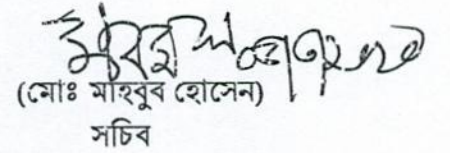 (মোঃ মাহবুব হোসেন)
সচিব